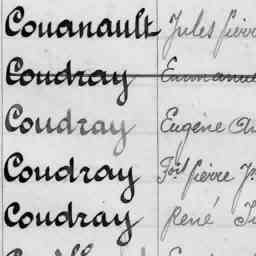 Couanault Jules Pierre
Coudray Emmanuel
Coudray Eugène
Coudray Pierre
Coudray René